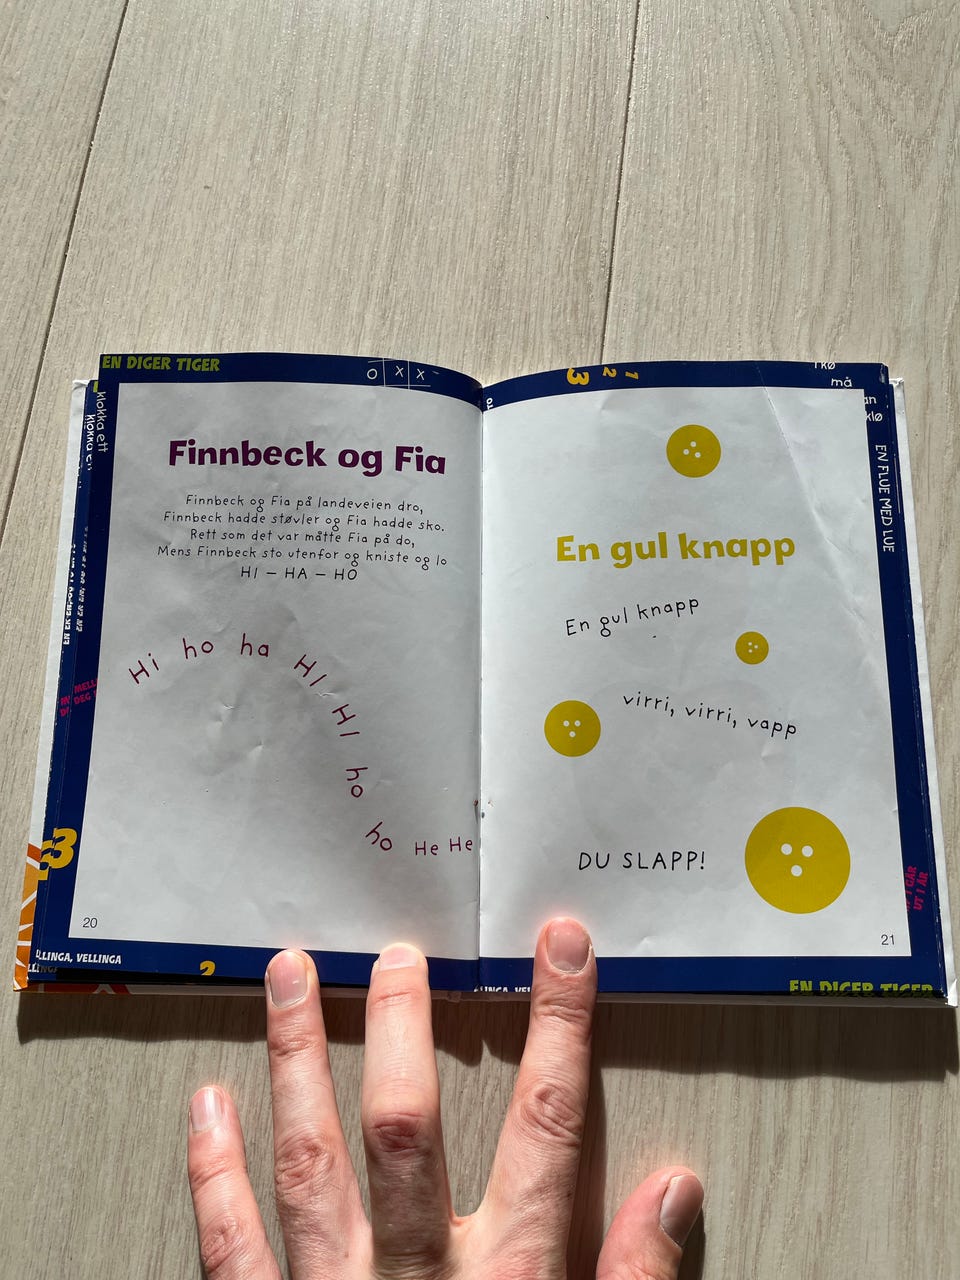 EN DIGER TIGER
O X X
klokka ett
Finnbeck og Fia
Finnbeck og Fia på landeveien dro,
Finnbeck hadde støvler og Fia hadde sko.
Rett som det var måtte Fia på do,
Mens Finnbeck sto utenfor og kniste og lo
HI – HA – HO
Hi ho ha HI HI ho ho He He
3
20
LLINGA, VELLINGA
2
3 2 1
må
klø
EN FLUE MED LUE
En gul knapp
En gul knapp
virri, virri, vapp
DU SLAPP!
I GÅR
UT I ÅR
21
EN DIGER TIGER